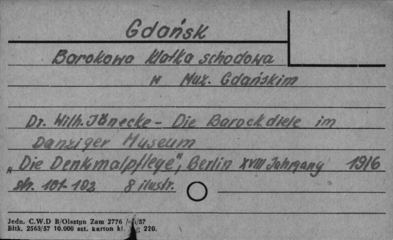 Gdańsk
Barokowa klatka schodowa
w Muz. Gdańskim
Dr. Wilh. Jänecke - Die Barockdiele im
Danziger Museum
„Die Denkmalpflege", Berlin XVIII Jahrgang 1916
str. 101-102 8 ilustr.
Jedn. C.W.D B/Olsztyn Zam 2776 /57
Bltk. 2563/57 10.000 szt. karton kl. g 220.